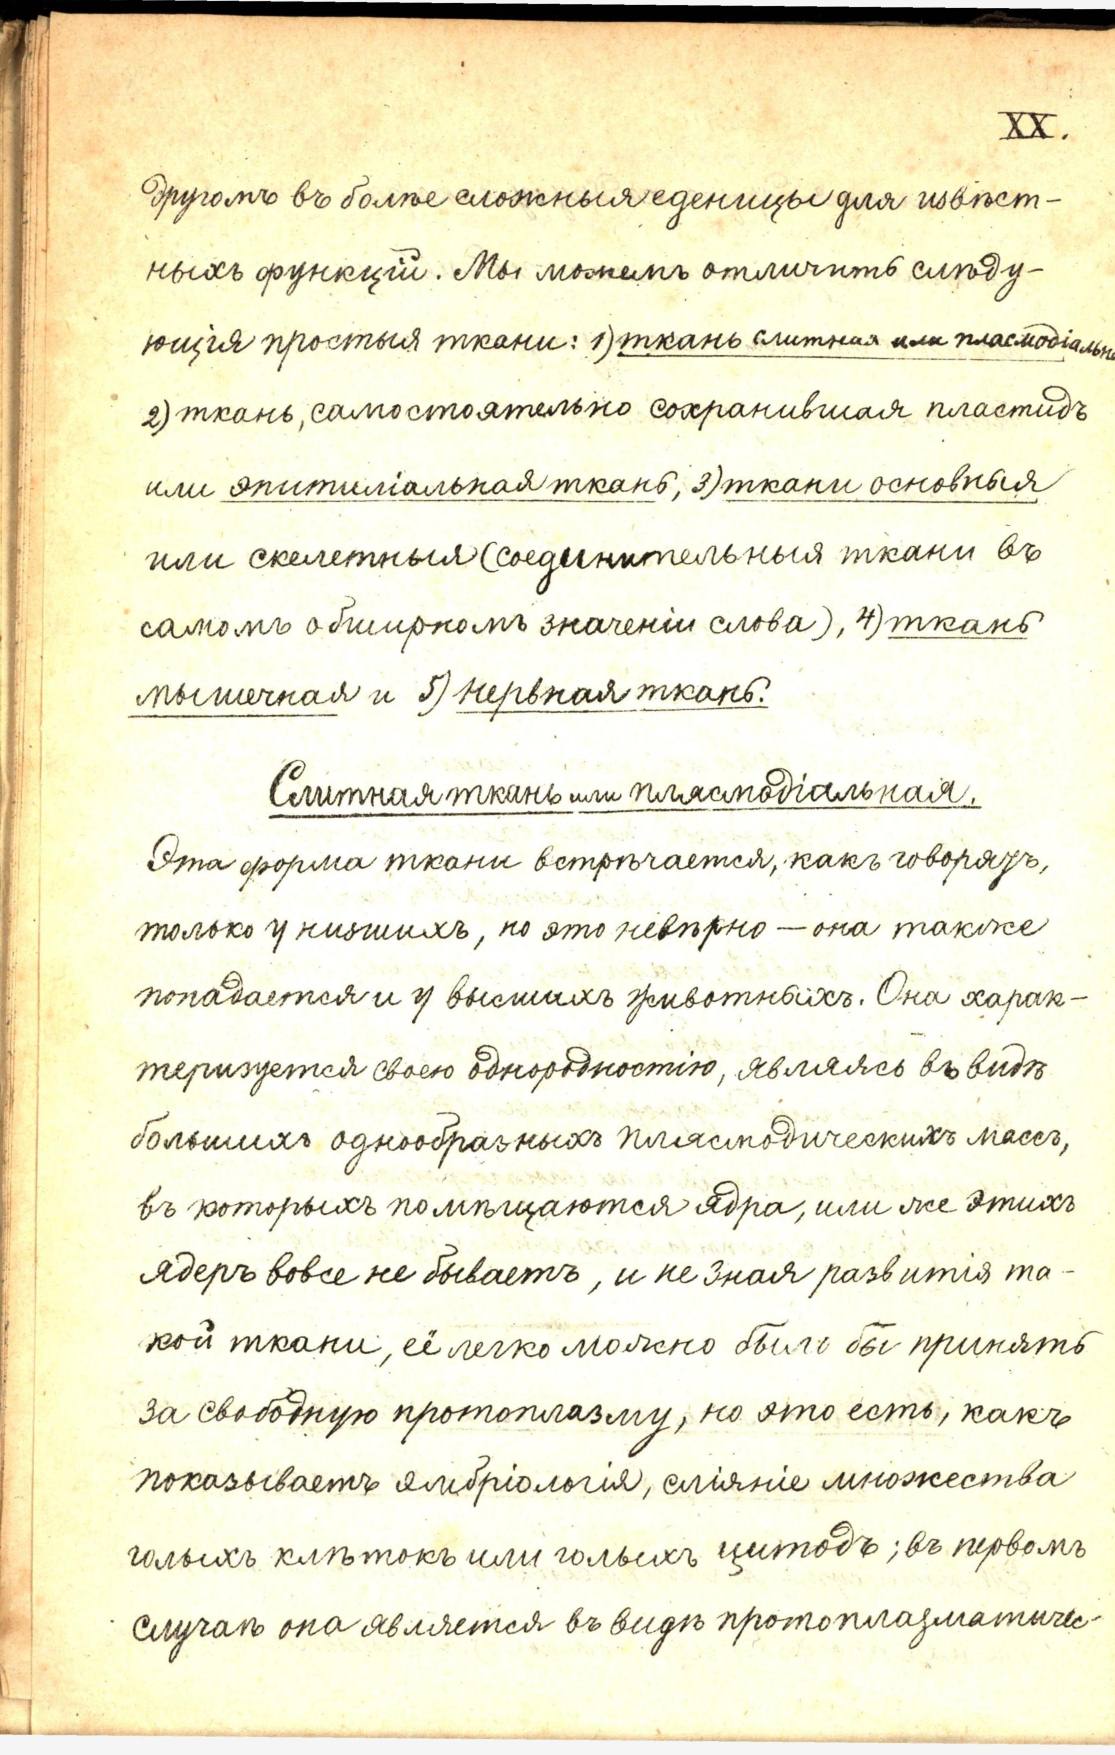 XX.
другомъ въ болѣе сложныя еденицы для извѣст-
ныхъ функцій. Мы можемъ отличить слѣду-
ющія простыя ткани: 1) ткань слитная или пласмодіальна
2) ткань, самостоятельно сохранившая пластидъ
или эпителіальная ткань, 3) ткани основныя
или скелетныя (соединительныя ткани въ
самомъ обширномъ значеніи слова), 4) ткань
мышечная и 5) нервная ткань.
Слитная ткань или плясмодіальная.
Эта форма ткани встрѣчается, какъ говорятъ,
только у низшихъ, но это невѣрно — она также
попадается и у высшихъ животныхъ. Она харак-
теризуется своею однородностію, являясь въ видѣ
большихъ однообразныхъ плясмодическихъ массъ,
въ которыхъ помѣщаются ядра, или же этихъ
ядеръ вовсе не бываетъ, и не зная развитія та-
кой ткани, её легко можно было бы принять
за свободную протоплазму, но это есть, какъ
показываетъ эмбріологія, сліяніе множества
голыхъ клѣтокъ или голыхъ цитодъ; въ первомъ
случаѣ она является въ видѣ протоплазматичес-